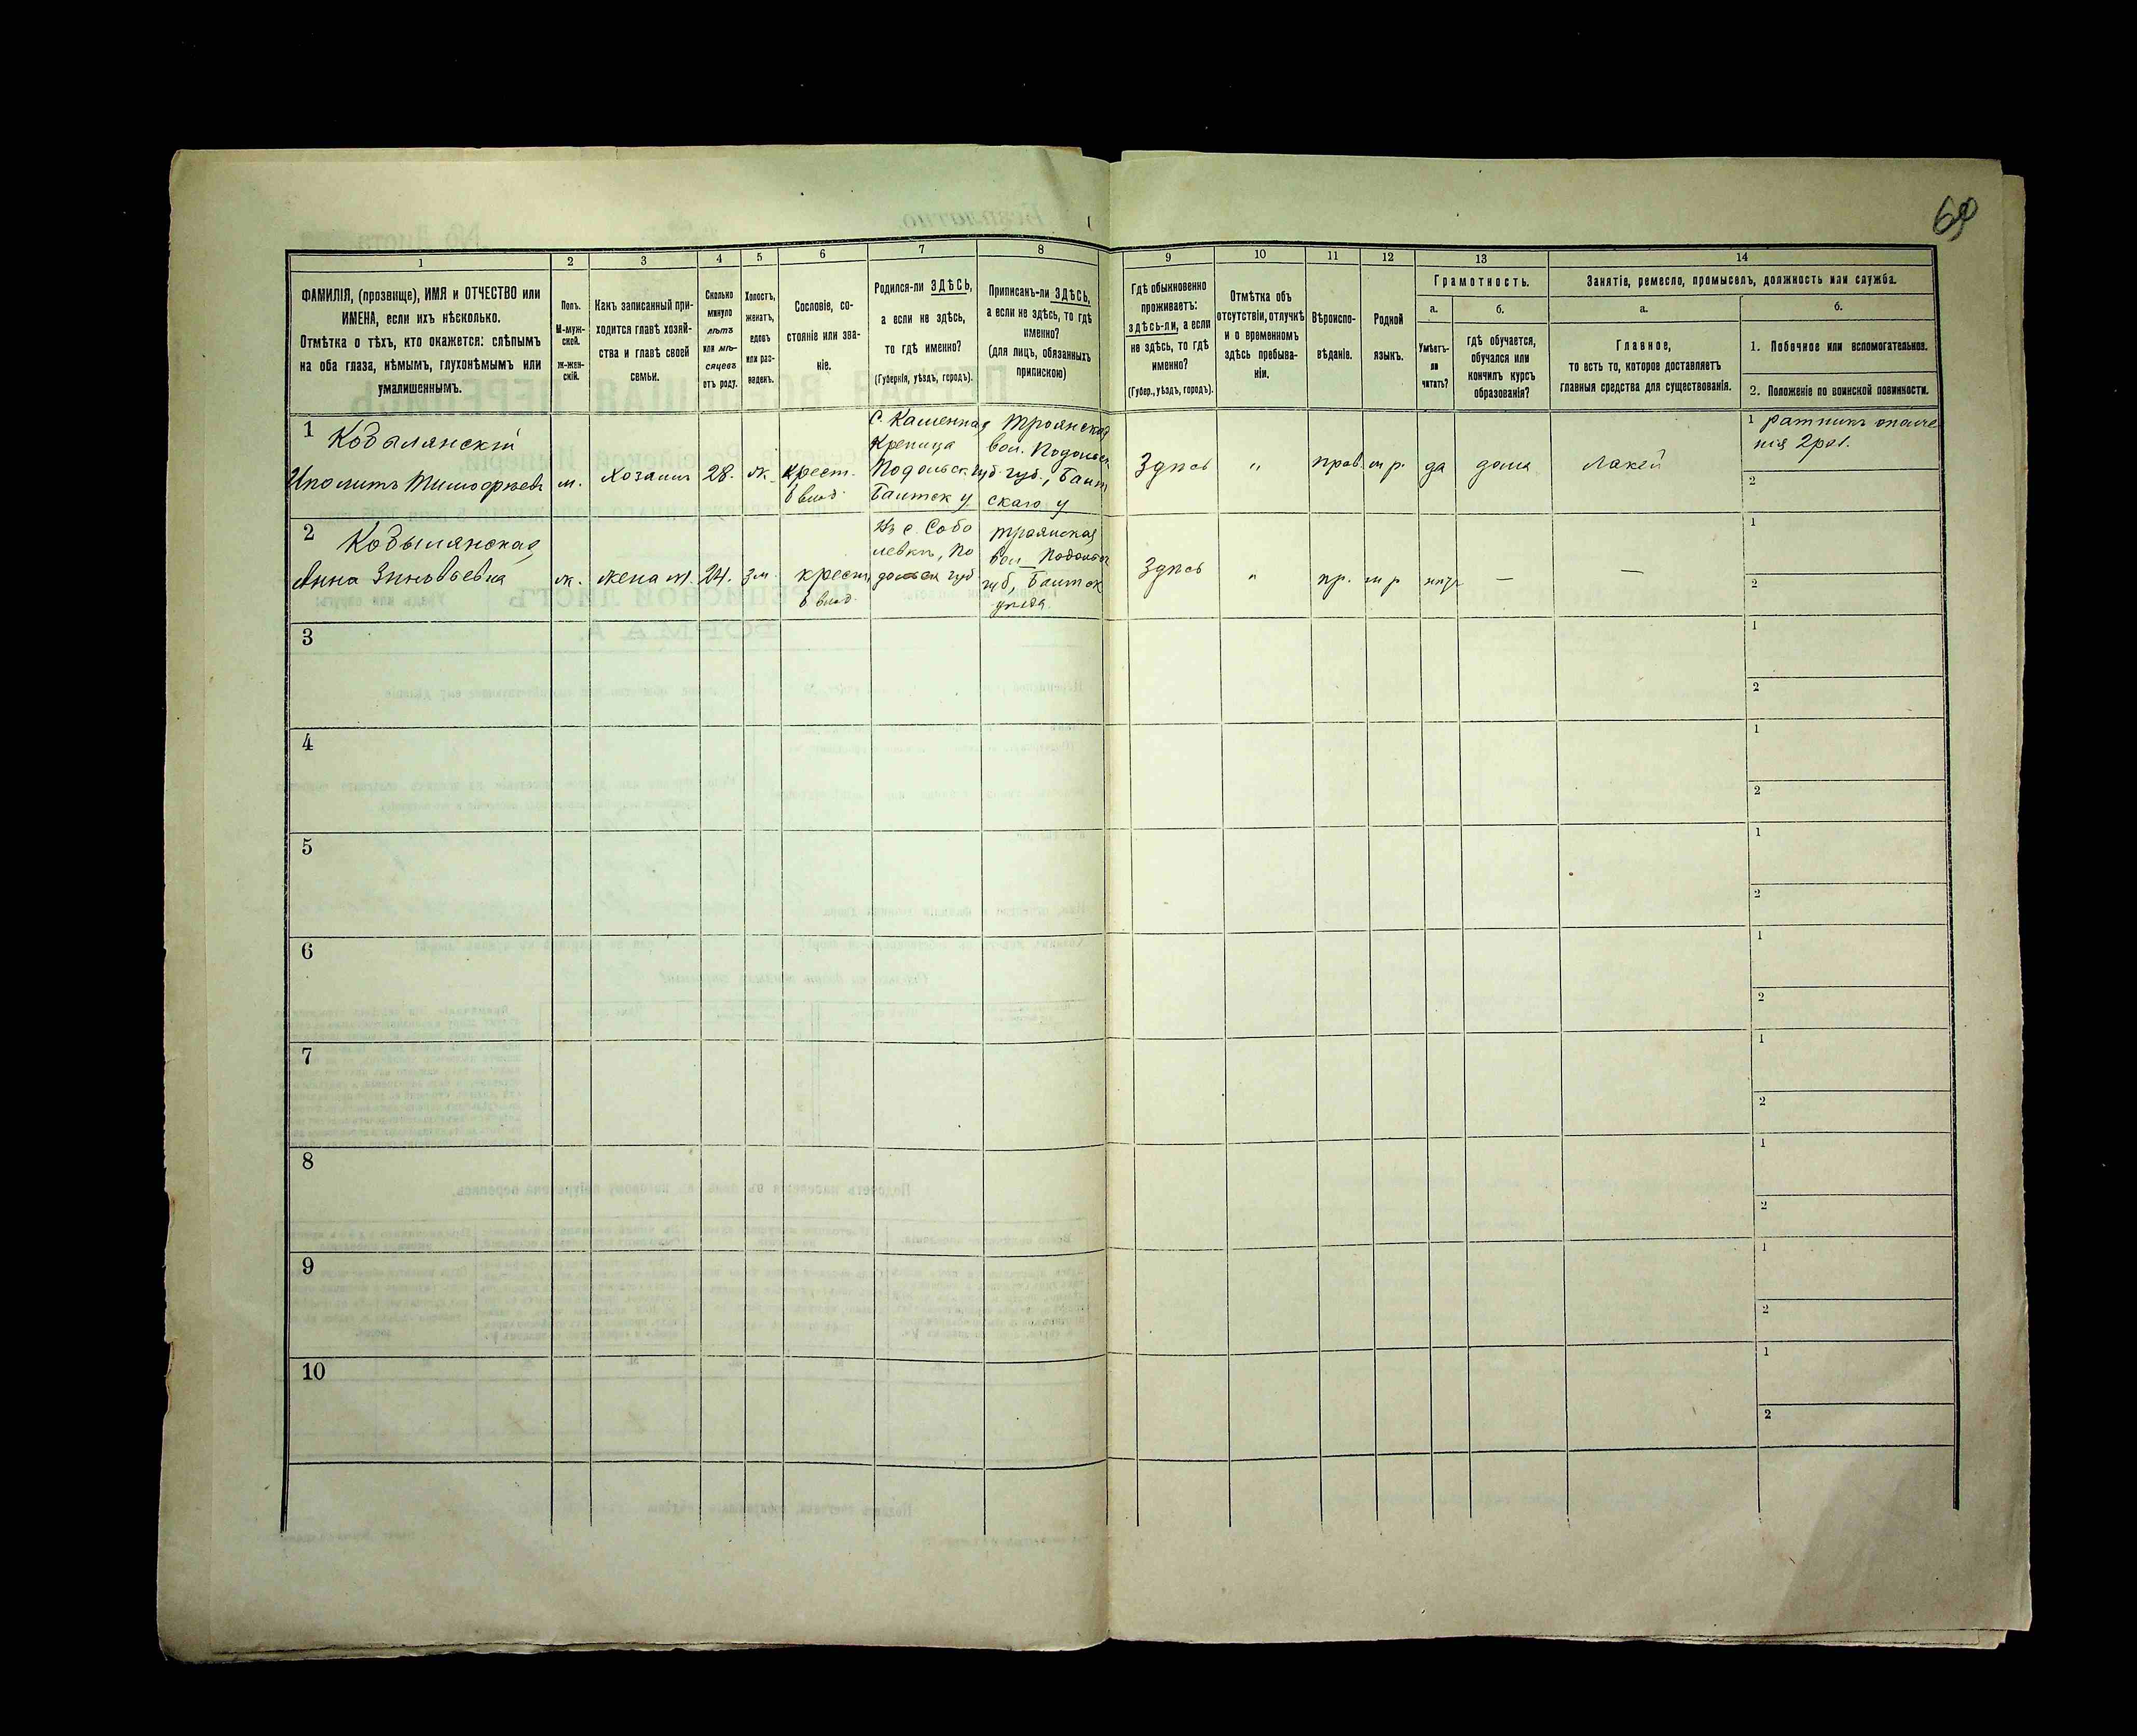 69
1
2
3
4
5
6
7
8
9
10
11
12
13
14
ФАМИЛІЯ, (прозвище), ИМЯ и ОТЧЕСТВО или
ИМЕНА, если ихъ нѣсколько.
Отмѣтка о тѣхъ, кто окажется: слѣпымъ
на оба глаза, нѣмымъ, глухонѣмымъ или
умалишеннымъ.
Полъ.
М-муж-
ской.
Ж-жен-
скій.
Какъ записанный при-
ходится главѣ хозяй-
ства и главѣ своей
семьи.
Сколько
минуло
лѣтъ
или мѣ-
сяцевъ
отъ роду.
Холостъ,
женатъ,
вдовъ
или раз-
веденъ.
Сословіе, со-
стояніе или зва-
ніе.
Родился-ли ЗДѢСЬ,
а если не здѣсь,
то гдѣ именно?
(Губернія, уѣздъ, городъ).
Приписанъ-ли ЗДѢСЬ,
а если не здѣсь, то гдѣ
именно?
(для лицъ, обязанныхъ
припискою)
Гдѣ обыкновенно
проживаетъ:
здѣсь-ли, а если
не здѣсь, то гдѣ
именно?
(Губер., уѣздъ, городъ).
Отмѣтка объ
отсутствіи, отлучкѣ
и о временномъ
здѣсь пребыва-
ніи.
Вѣроиспо-
вѣданіе.
Родной
языкъ.
Грамотность.
а.
Умѣетъ-
ли
читать?
б.
гдѣ обучается,
обучался или
кончилъ курсъ
образованія?
Занятіе, ремесло, промыселъ, должность или служба.
а.
Главное,
то есть то, которое доставляетъ
главныя средства для существованія.
б.
1. Побочное или вспомогательное.
2. Положеніе по воинской повинности.
1
Кобылянскій
Иполитъ Тимофѣевъ
м.
Хозяинъ
28.
ж.
крест.
б влад.
С. Каменная
Креница
Подольск. губ
Балтск у
Троянской
вол. Подольск
губ., Балт
скаго у
Здѣсь
"
прав.
м р.
да
дома
Лакей
1 ратникъ ополче
нія 2 раз.
2
2
Кобылянская
Анна Зиновьевна
ж.
жена 1.
24.
зм.
крест.
б влад.
Въ с. Собо
левкѣ, По
дольск губ
Троянская
вол Подольск
губ, Балтск
уѣзда.
Здѣсь
"
пр.
м р
нѣтъ
—
—
1
2
3
1
2
4
1
2
5
1
2
6
1
2
7
1
2
8
1
2
9
1
2
10
1
2